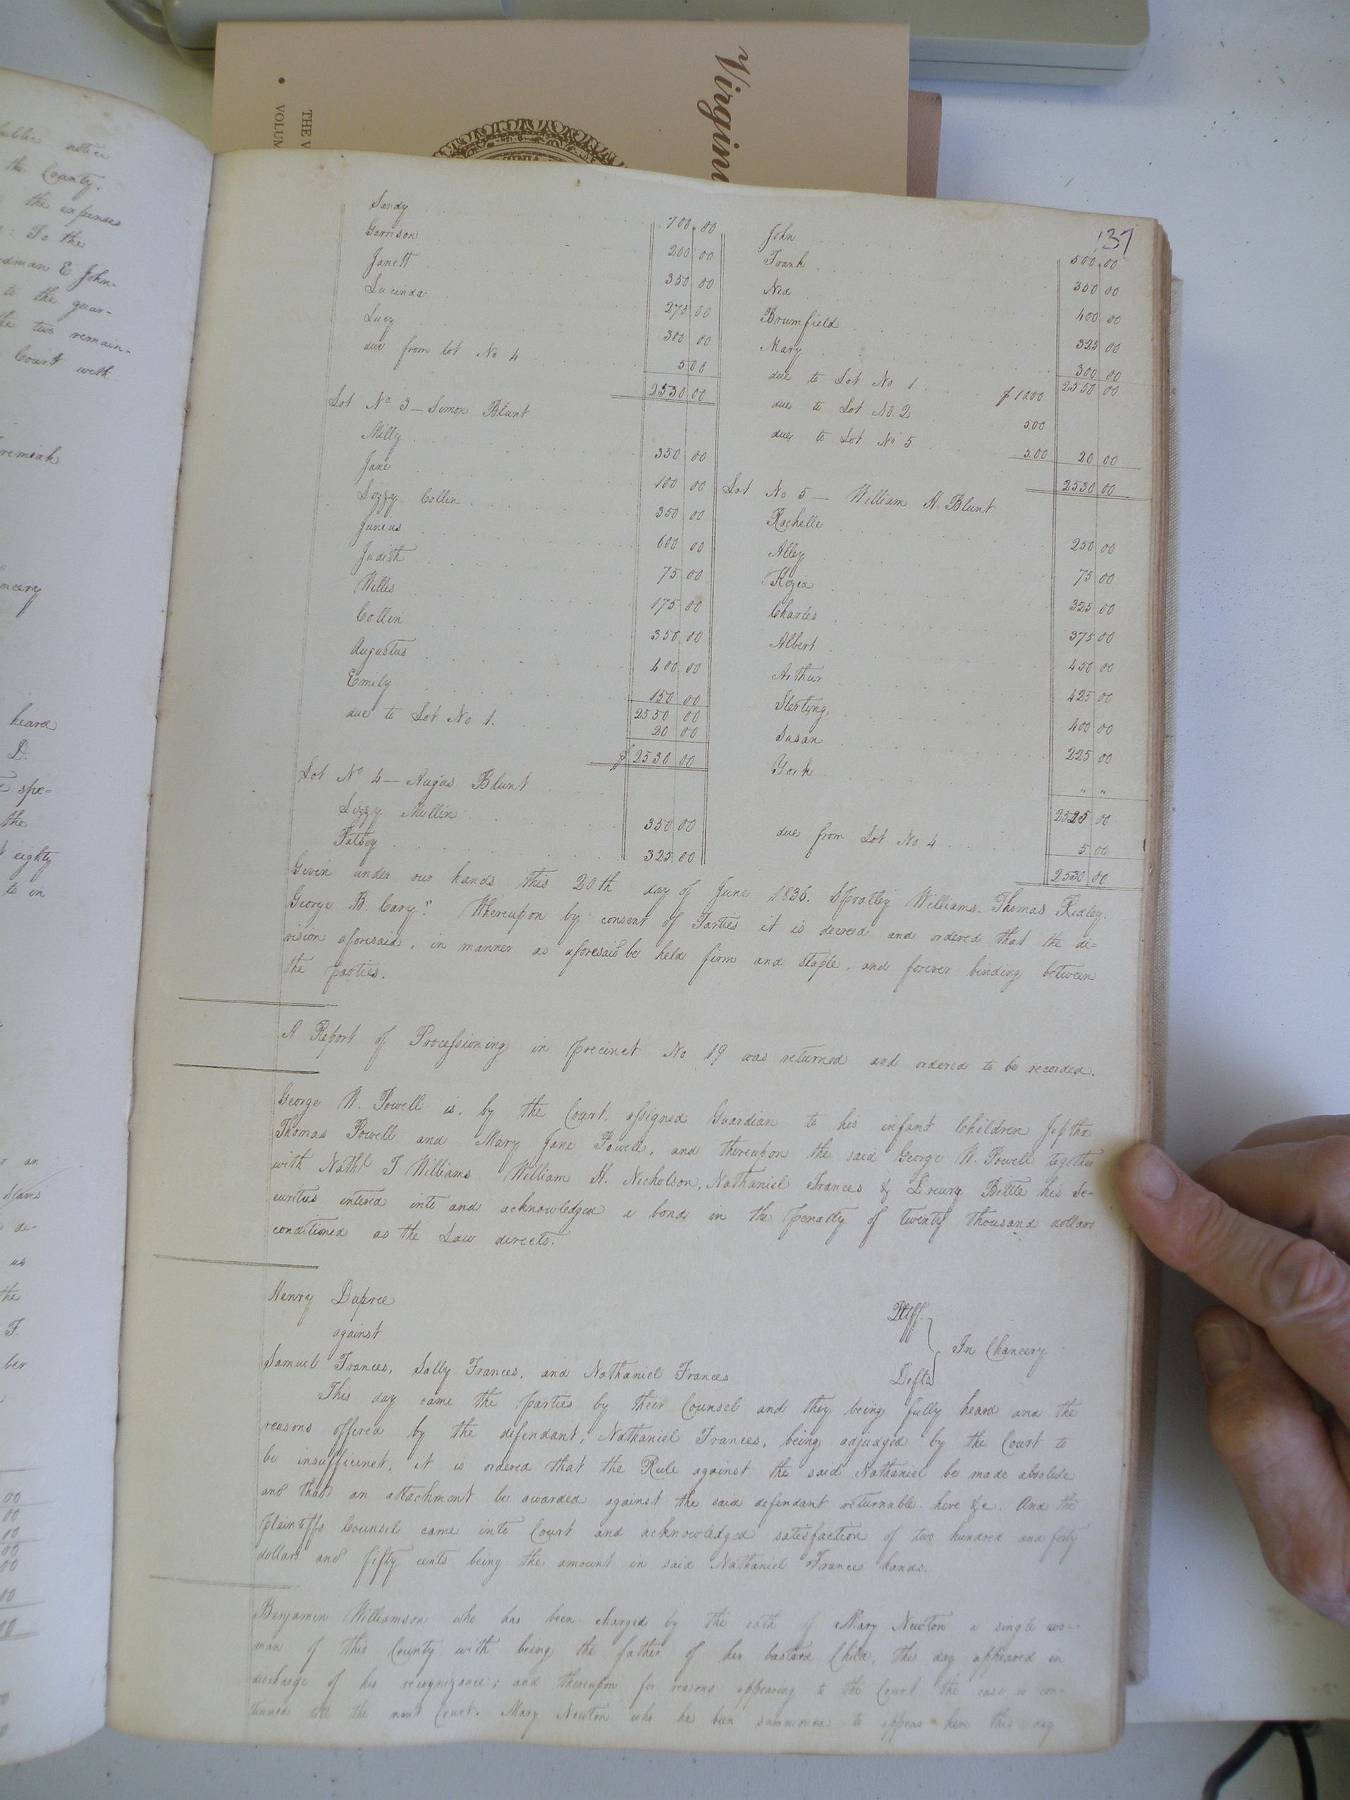 Virgin
THE V
VOLUM
137
Sandy 700.00
Garrison 200 00
Janett 350 00
Lucinda 275 00
Lucy 300 00
due from lot No 4 5 00
2530 00
Lot No 3 — Simon Blunt
Milly 350 00
Jane 100 00
Lizzy Collin 350 00
Junius 600 00
Judith 75 00
Willis 175 00
Collin 350 00
Augustus 400 00
Emily 150 00
2550 00
due to Lot No 1. 20 00
$2530 00
Lot No 4 — Angus Blunt
Lizzy Mullin 350 00
Patsey 325 00
John 500.00
Frank 350 00
Ned 400 00
Brumfield 325 00
Mary 300 00
2550 00
due to Lot No 1 $10.00
due to Lot No. 2 5.00
due to Lot No 5 5.00 20 00
2530 00
Lot No 5 — William H. Blunt
Rochelle 250 00
Alley 75 00
Keziah 325 00
Charles 375 00
Albert 450 00
Arthur 425 00
Sterling 400 00
Susan 225 00
York " "
2525 00
due from Lot No 4 5 00
2530 00
Given under our hands this 20th day of June 1836. Spratley Williams. Thomas Ridley.
George B. Cary." Whereupon by consent of Parties it is decreed and ordered that the di=
vision aforesaid, in manner as aforesaid be held firm and stable, and forever binding between
the parties.
A Report of Processioning in Precinct No 19 was returned and ordered to be recorded.
George W. Powell is, by the Court, assigned Guardian to his infant Children Jeptha
Thomas Powell and Mary Jane Powell, and thereupon the said George W. Powell together
with Nathl T Williams William H. Nicholson, Nathaniel Frances & Drewry Bittle his Se=
curities entered into and acknowledged a bond in the Penalty of twenty thousand dollars
conditioned as the Law directs.
Henry Dupree Pltff.
against In Chancery
Samuel Frances, Sally Frances, and Nathaniel Frances Defts
This day came the Parties by their Counsel and they being fully heard and the
reasons offered by the defendant, Nathaniel Frances, being adjudged by the Court to
be insufficient, it is ordered that the Rule against the said Nathaniel be made absolute
and that an attachment be awarded against the said defendant returnable here &c. And the
Plaintiffs Counsel came into Court and acknowledged satisfaction of two hundred and forty
dollars and fifty cents being the amount in said Nathaniel Frances hands.
Benjamin Williamson who has been charged by the oath of Mary Newton a single wo-
man of this County with being the father of her bastard Child, this day appeared in
discharge of his recognizance; and thereupon for reasons appearing to the Court the case is con-
tinued till the next Court. Mary Newton who has been summoned to appear here this day